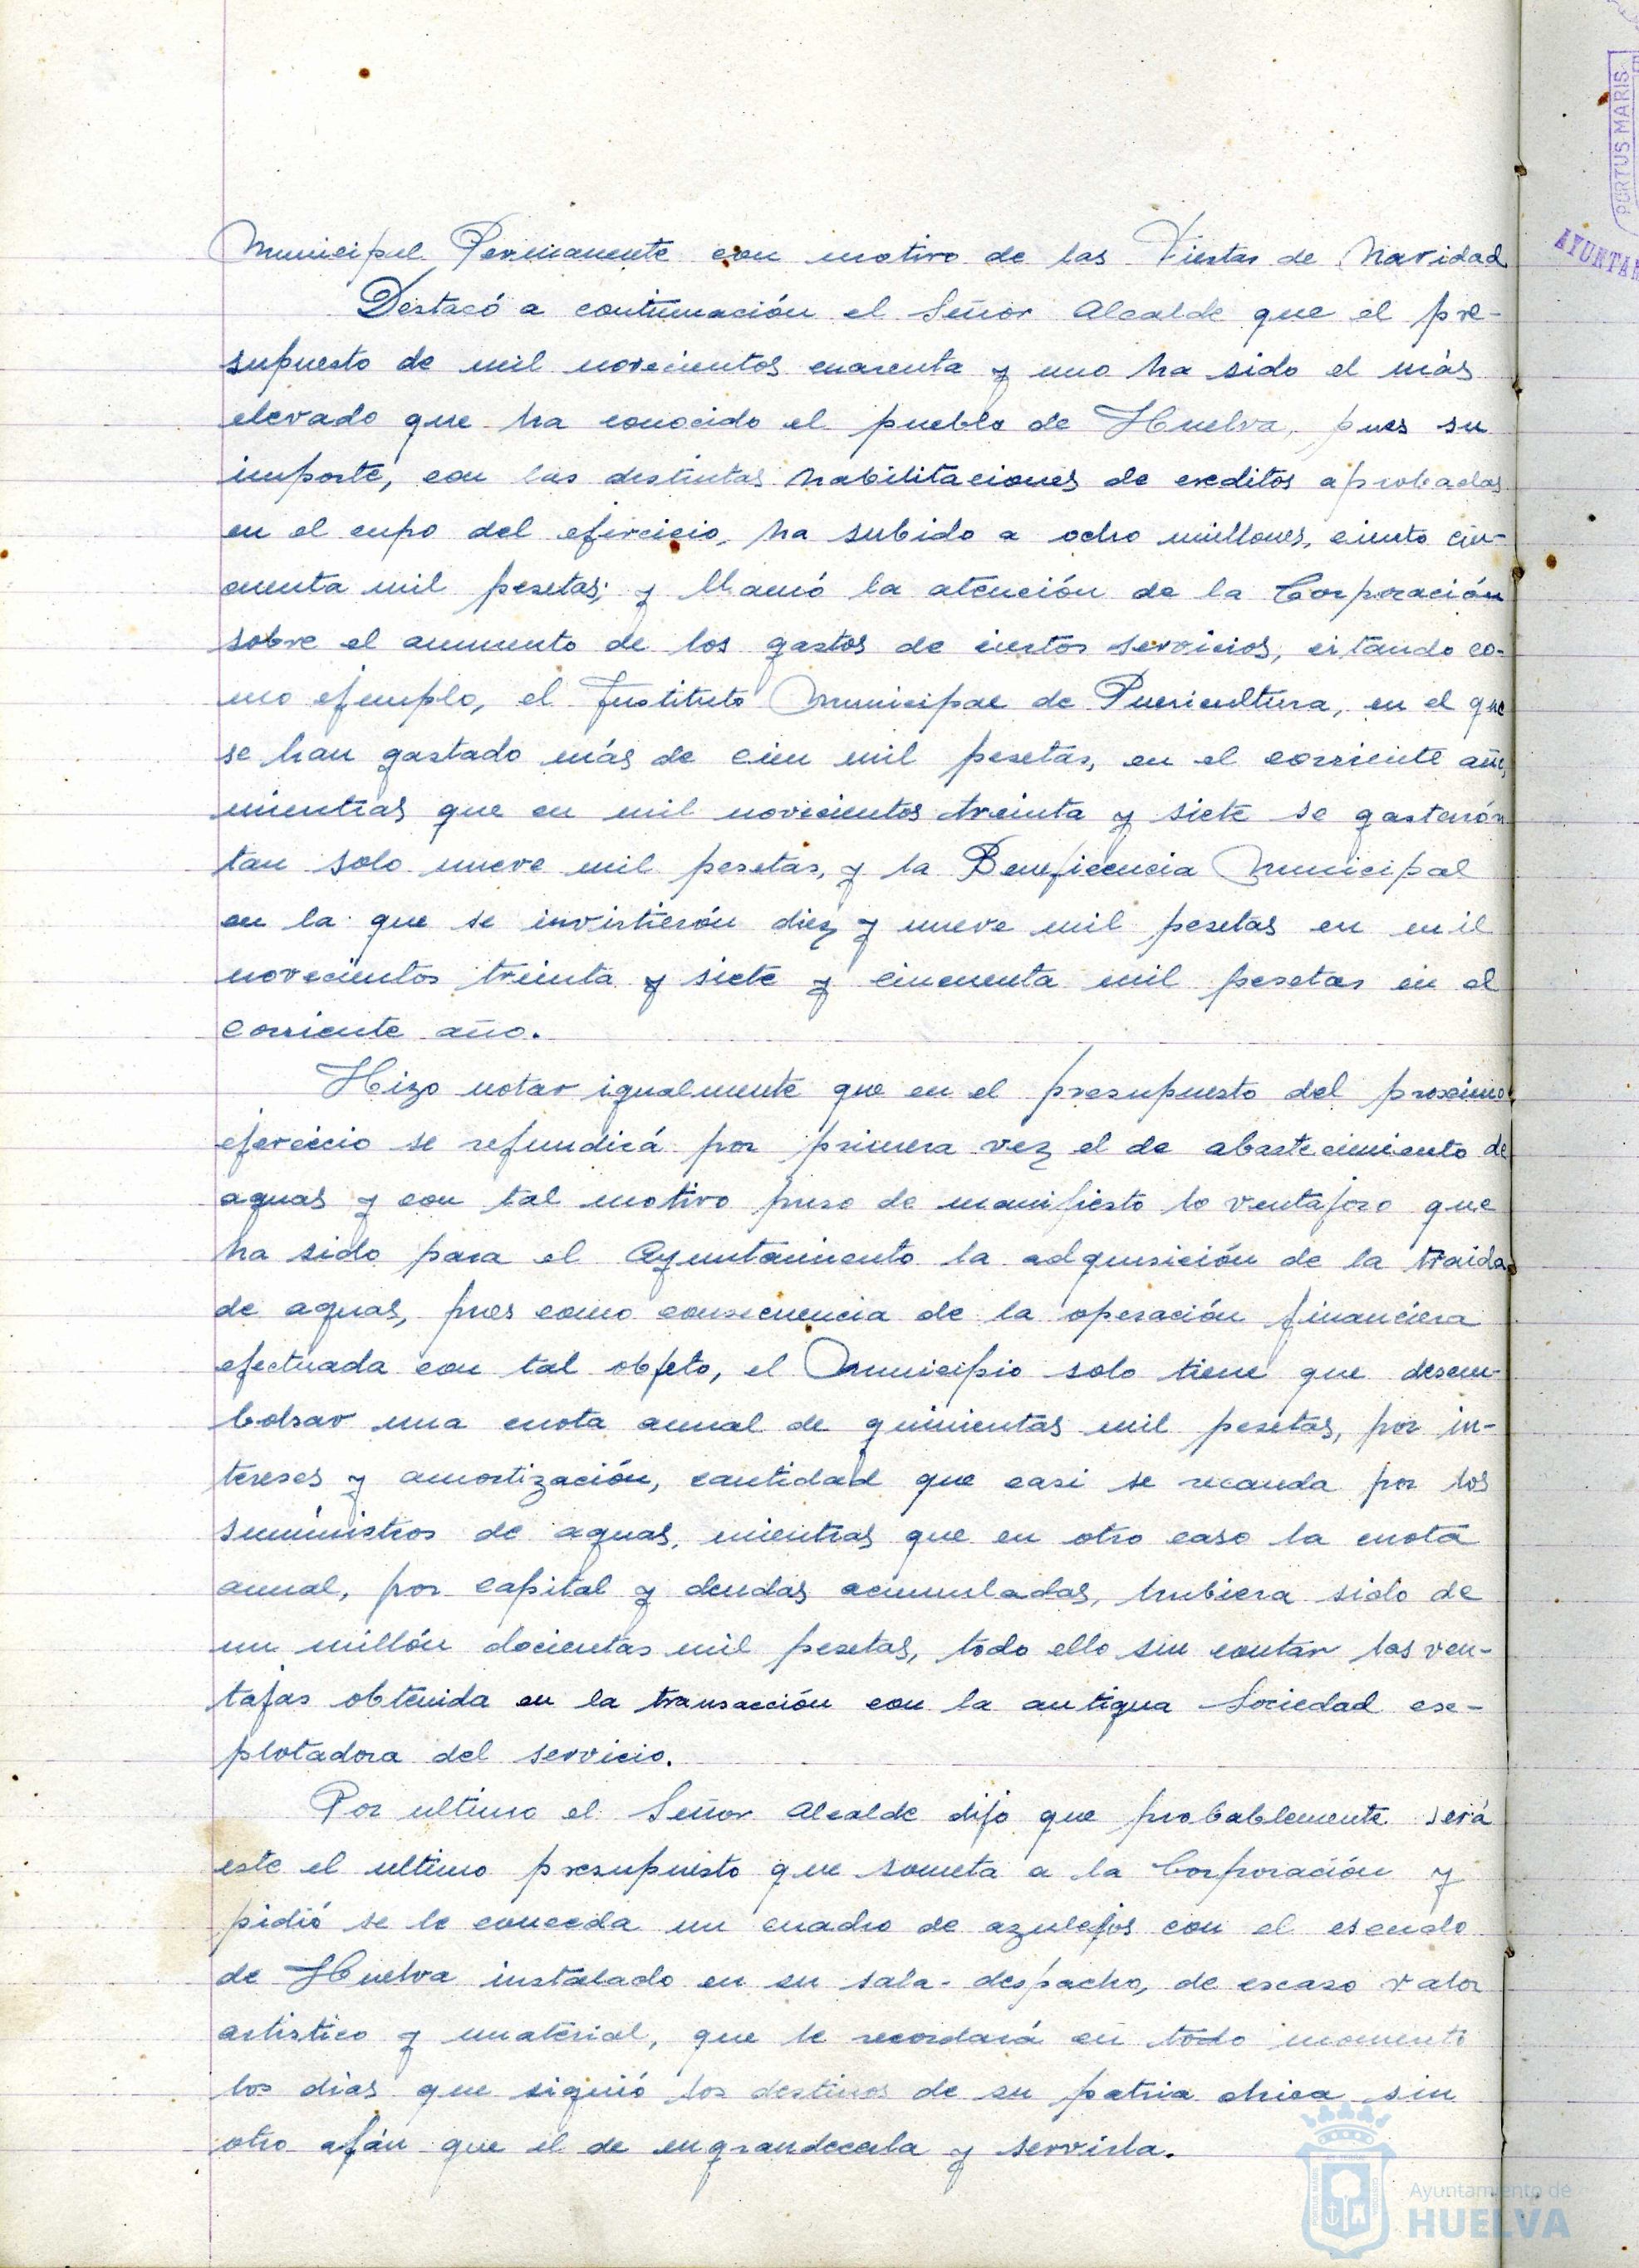 Municipal Permanente con motivo de las Fiestas de Navidad
Destacó a continuación el Señor Alcalde que el pre-
supuesto de mil novecientos cuarenta y uno ha sido el más
elevado que ha conocido el pueblo de Huelva, pues su
importe, con las distintas habilitaciones de creditos aprobadas
en el cupo del ejercicio, ha subido a ocho millones, ciento cin-
cuenta mil pesetas; y llamó la atención de la Corporación
sobre el aumento de los gastos de ciertos servicios, citando co-
mo ejemplo, el Instituto Municipal de Puericultura, en el que
se han gastado más de cien mil pesetas, en el corriente año,
mientras que en mil novecientos treinta y siete se gastarón
tan solo nueve mil pesetas, y la Beneficencia Municipal
en la que se invirtierón diez y nueve mil pesetas en mil
novecientos treinta y siete y cincuenta mil pesetas en el
corriente año.
Hizo notar igualmente que en el presupuesto del proximo
ejercicio se refundirá por primera vez el de abastecimiento de
aguas y con tal motivo puso de manifiesto lo ventajoso que
ha sido para el Ayuntamiento la adquisición de la traida
de aguas, pues como consecuencia de la operación financiera
efectuada con tal objeto, el Municipio solo tiene que desem-
bolsar una cuota anual de quinientas mil pesetas, por in-
tereses y amortización, cantidad que casi se recauda por los
suministros de aguas, mientras que en otro caso la cuota
anual, por capital y deudas acumuladas, hubiera sido de
un millón docientas mil pesetas, todo ello sin contar las ven-
tajas obtenida en la transacción con la antigua Sociedad ex-
plotadora del servicio.
Por ultimo el Señor Alcalde dijo que probablemente será
este el ultimo presupuesto que someta a la Corporación y
pidió se le conceda un cuadro de azulejos con el escudo
de Huelva instalado en su sala-despacho, de escaso valor
artistico y material, que le recordará en todo momento
los dias que siguió los destinos de su patria chica sin
otro afán que el de engrandecerla y servirla.
PORTUS MARIS
Ayuntamiento de
HUELVA